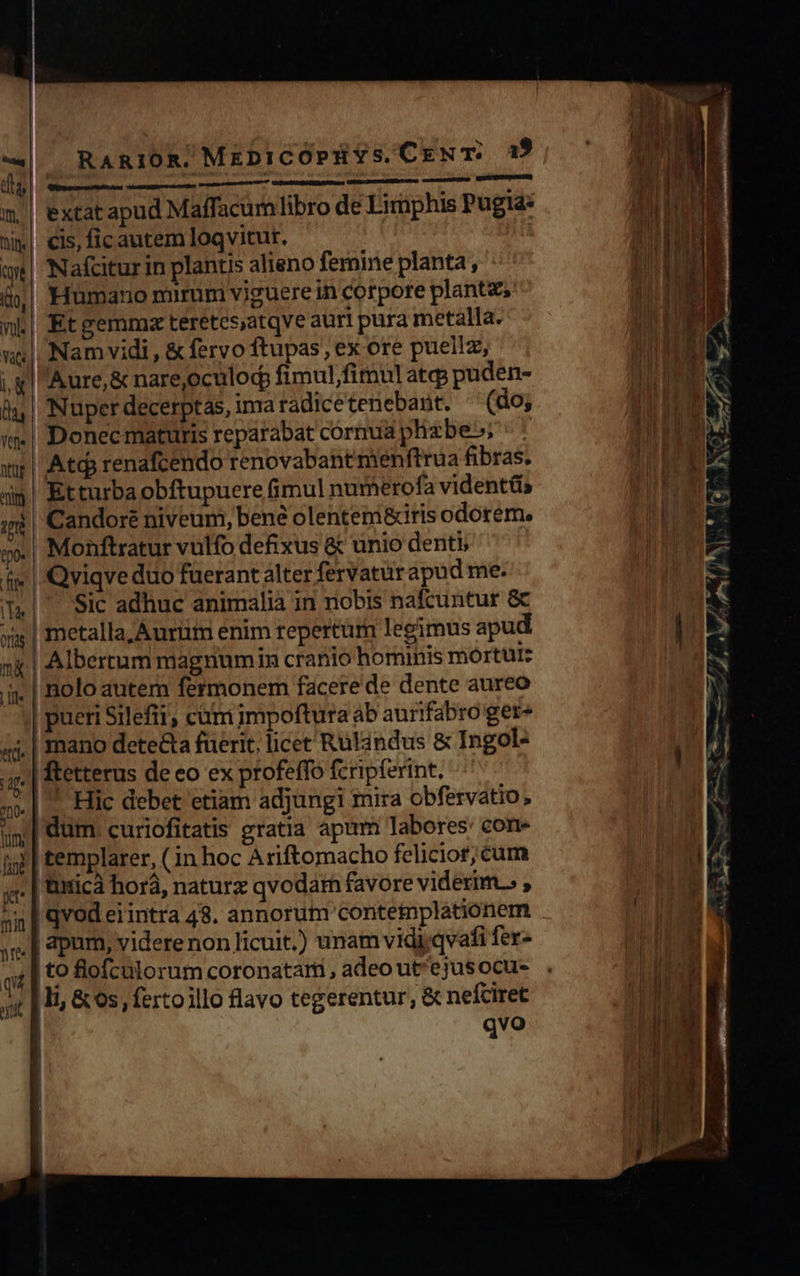 RARIOR. MEDICOPHYS. CENT. 19
extat apud Maſſacum libro de Limphis Pugia-
cis, ſic autem loqvitur.
Naſcitur in plantis alieno ſemine planta,
Humano mirum viguere in corpore plantæ,
Et gemmæ teretes, atqve auri pura metalla.
Nam vidi, & ſervo ſtupas, ex ore puellæ,
Aure, & nare, oculoꝗ; ſimul, ſimul atꝗ; puden-
Nuper decerptas, ima radice tenebant. (do,
Donec maturis reparabat cornua phæbes,
Atꝗ; renaſcendo renovabant menſtrua fibras.
Et turba obſtupuere ſimul numeroſa videntũ
Candorẽ niveum, benè olentem & iris odorem.
Monſtratur vulſo defixus & unio denti,
Qviqve duo fuerant alter ſervatur apud me.
Sic adhuc animalia in nobis naſcuntur &
metalla, Aurum enim repertum legimus apud
Albertum magnum in cranio hominis mortui:
nolo autem ſermonem facere de dente aureo
pueri Sileſii, cùm impoſtura ab aurifabro ger-
mano detecta fuerit, licet Rulandus & Ingol-
ſtetterus de eo ex profeſſo ſcripſerint.
Hic debet etiam adjungi mira obſervatio,
dum curioſitatis gratia apum labores con-
templarer, (in hoc Ariſtomacho felicior, cum
unicâ horâ, naturæ qvodam favore viderim,
qvod ei intra 48. annorum contemplationem
apum, videre non licuit.) unam vidi, qvaſi ſer-
to floſculorum coronatam, adeo ut ejus ocu-
li, & os, ſerto illo flavo tegerentur, & neſciret
qvo